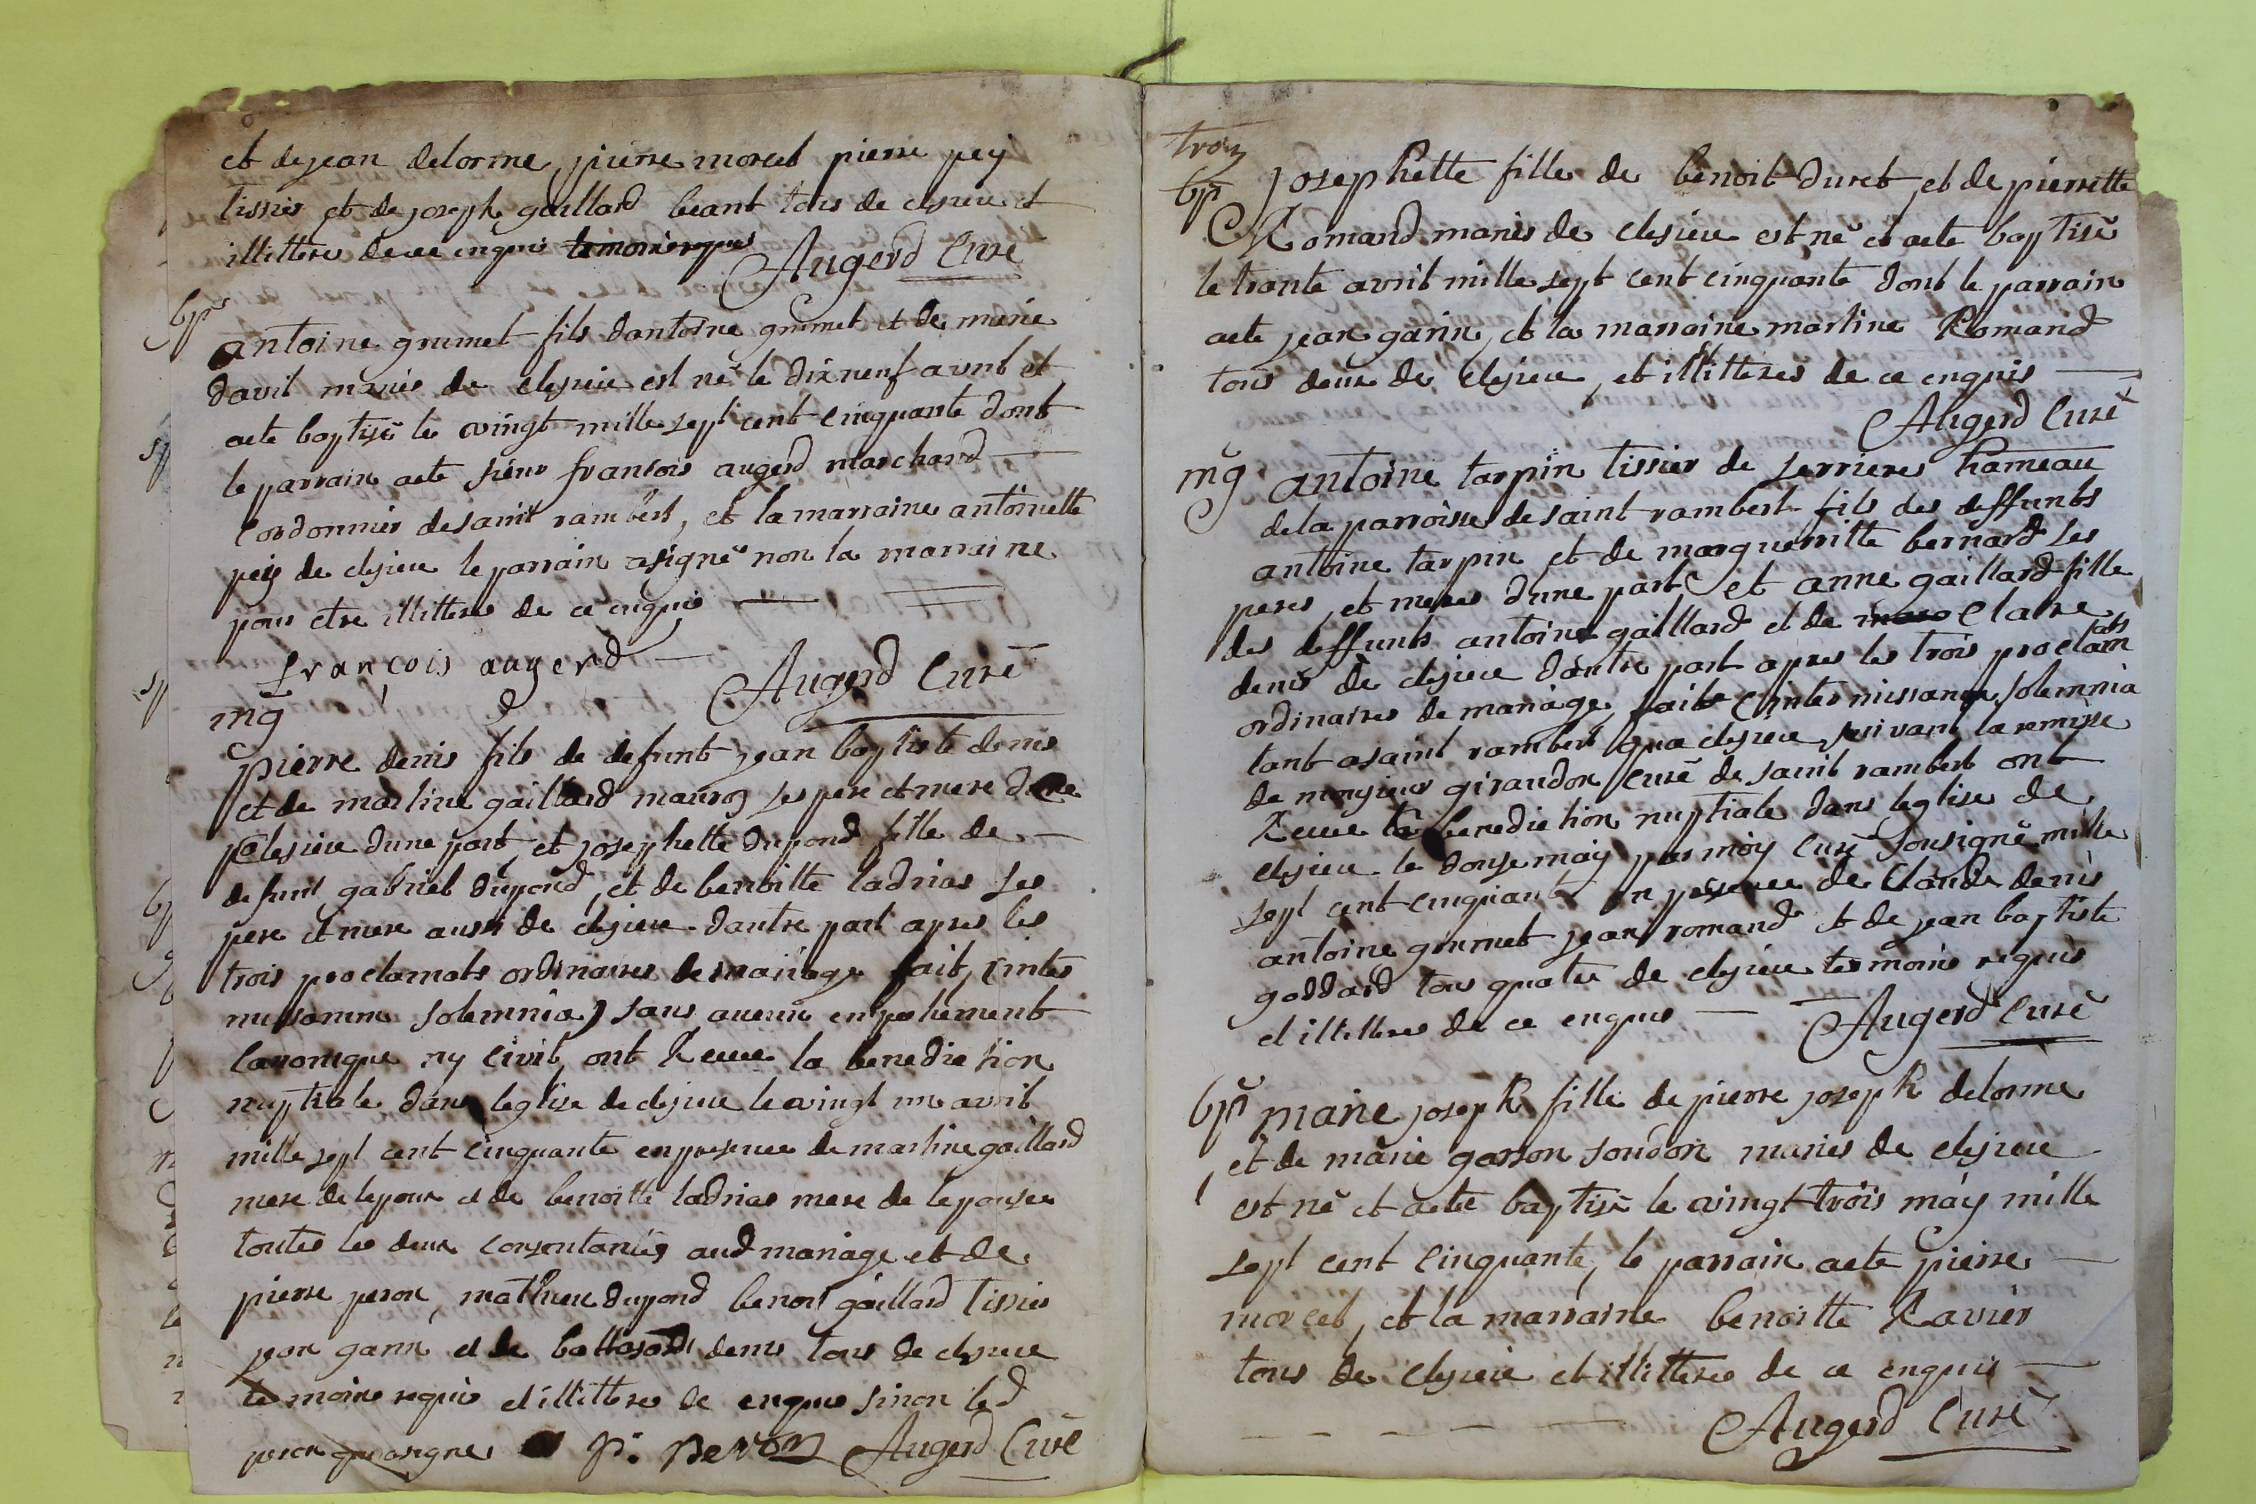 et de jean delorme, pierre morcel pierre pey
tissier et de joseph gaillard beant tous de clesieu et
illitteres de ce enquis temoins requis
Augerd Curé
bp
antoine grumet fils dantoine grumet et de marie
davit mariés de clesieu est né le dix neuf avril et
aete baptisé le vingt mille sept cent cinquante dont
le parrain aete sieur francois augerd marchand
Cordonnier de saint rambert, et la marraine antoinette
pey de clesieu le parrain asigné non la marraine
pour etre illittere de ce enquis
francois augerd
Augerd Curé
mg
pierre denis fils de defunt jean baptiste denis
et de marline gaillard mariés ses pere et mere de
Clesieu dune part, et josephette dupond fille de
defunt gabriel dupond, et de benoitte ladrias ses
pere et mere aussi de clesieu dautre part apres les
trois proclamats ordinaires de mariage fait, (inter
missarum solemnia) sans aucun empechement
Canonique ny Civil, ont Receu la benediction
nuptiale dans leglise de clesieu le vingt un avril
mille sept cent Cinquante en presence de marline gaillard
mere de lepoux et de benoitte ladrias mere de lepouse
toutes les deux consentantes aud mariage et de
pierre peron, mathieu dupond benoit gaillard tissier
jean garin et de baltasard denis tous de clesieu
temoins requis et illitteres de enquis sinon led
peron qui asigné P. peron Augerd Curé
trois
bp josephette fille de benoit duret, et de pierrette
Romand mariés de clesieu est né et aete baptisé
le trante avril mille sept cent cinquante dont le parrain
aete jean garin, et la marraine marline Romand
tous deux de Clesieu, et illitteres de ce enquis
Augerd Curé
mg antoine tarpin tissier de serrieres hameau
de la parroisse de saint rambert fils des deffunts
antoine tarpin et de marguerritte bernard ses
peres, et meres dune part, et anne gaillard fille
des deffunts antoine gaillard et de Claire
denis de clesieu dautre part apres les trois proclamats
ordinaires de mariage, faits (inter missarum solemnia
tant asaint rambert qua clesieu, suivant la remisse
de monsieur giraudon Curé de saint rambert ont
Receu la benediction nuptiale dans leglise de
clesieu le douse may par moy Curé sousigné mille
sept cent cinquante en presence de Claude denis
antoine grumet jean romand et de jean baptiste
goddard tous quatre de clesieu temoins requis
et illitteres de ce enquis
Augerd Curé
bp marie joseph fille de pierre joseph delorme
et de marie garson soudon mariés de clesieu
est né et aeté baptisé le vingt trois may mille
sept cent Cinquante, le parrain aete pierre
morcel, et la marraine benoitte Ravier
tous de clesieu et illitteres de ce enquis
Augerd Curé